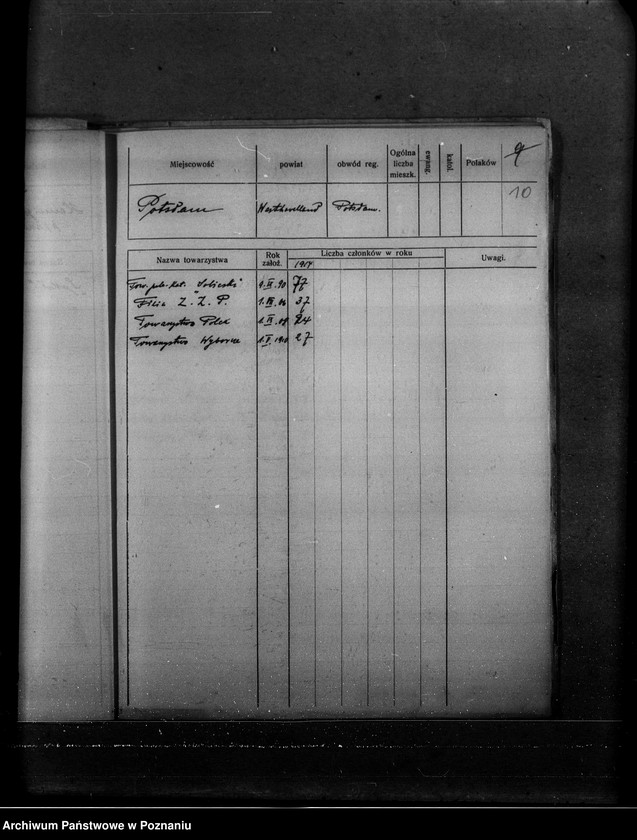 Miejscowość powiat obwód reg. Ogólna liczba mieszk. ewang. katol. Polaków 9
Potsdam Westhavelland Potsdam. 10
Nazwa towarzystwa Rok założ. Liczba członków w roku Uwagi.
1914
Tow. pol. kat. "Sobieski" 90 77
Filia Z. Z. P. 37
Towarzystwo Polek 24
Towarzystwo Wyborcze 1910 27
Archiwum Państwowe w Poznaniu